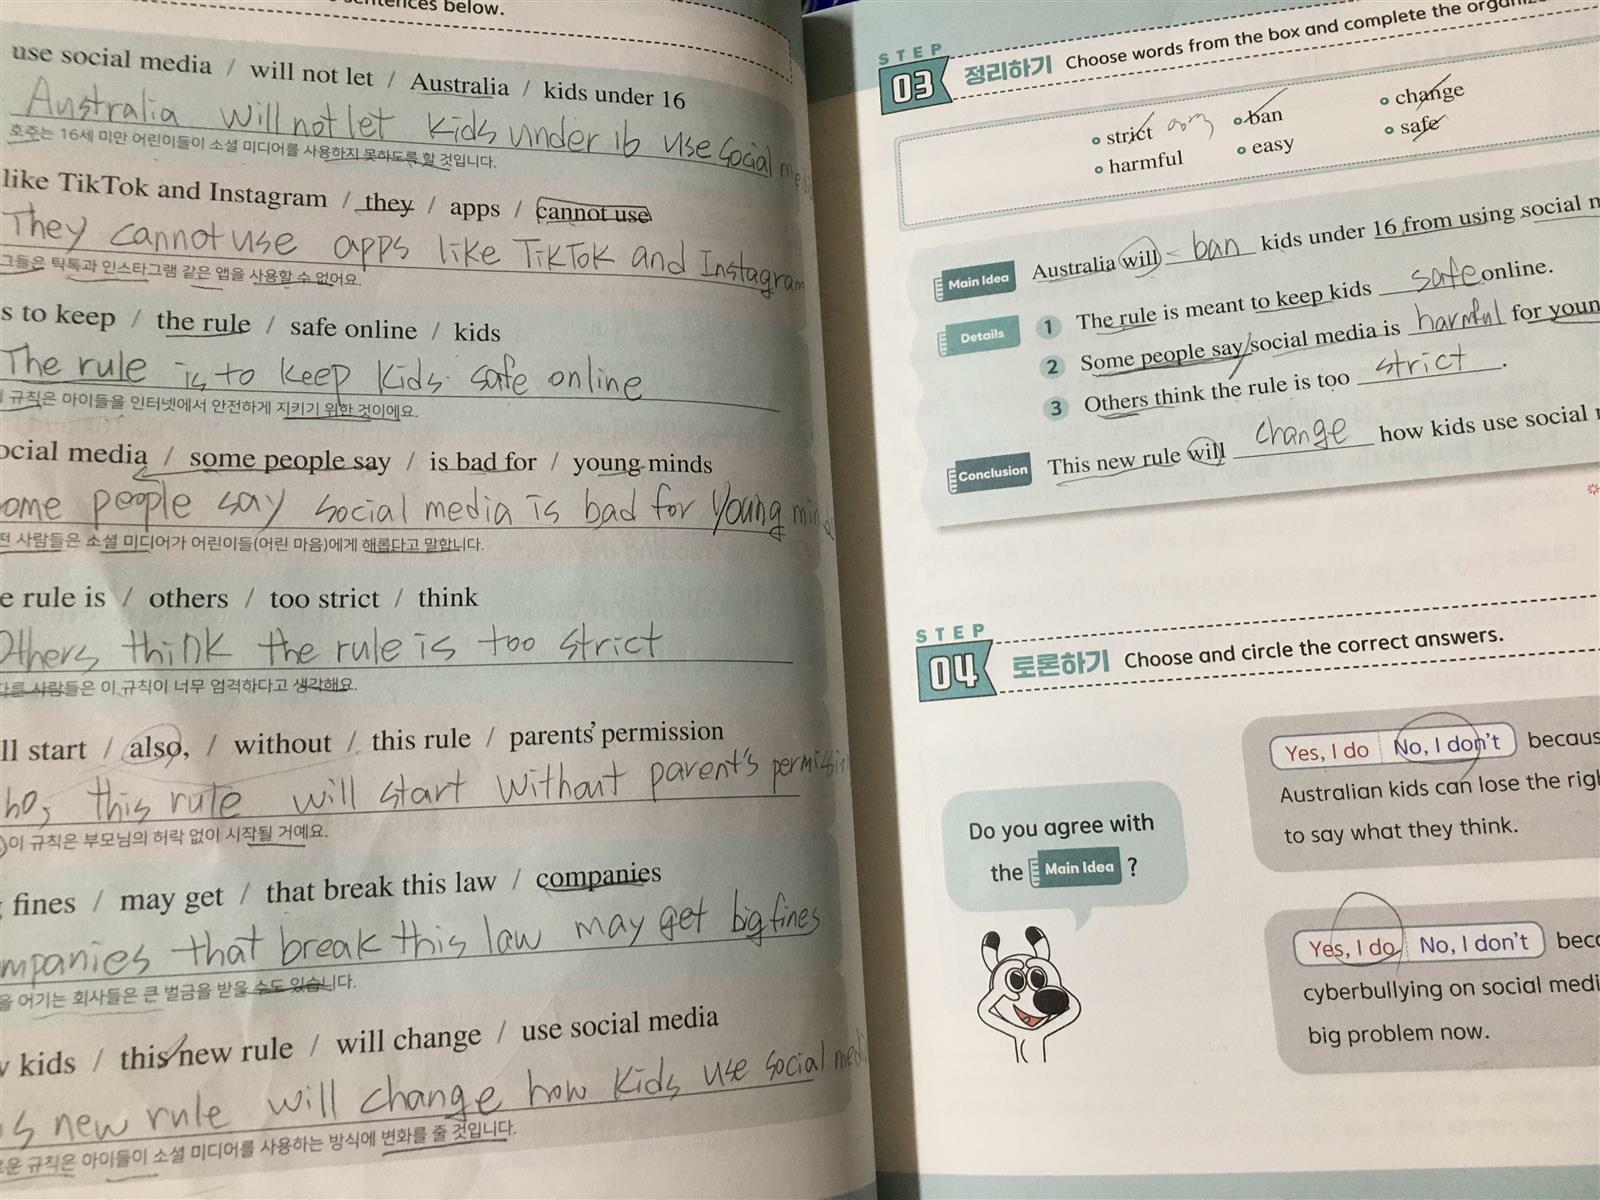 sentences below.
use social media / will not let / Australia / kids under 16
Australia will not let kids under 16 use social media
호주는 16세 미만 어린이들이 소셜 미디어를 사용하지 못하도록 할 것입니다.
like TikTok and Instagram / they / apps / cannot use
They cannot use apps like TikTok and Instagram
그들은 틱톡과 인스타그램 같은 앱을 사용할 수 없어요.
s to keep / the rule / safe online / kids
The rule is to keep kids safe online
규칙은 아이들을 인터넷에서 안전하게 지키기 위한 것이에요.
ocial media / some people say / is bad for / young minds
ome people say social media is bad for young mind
떤 사람들은 소셜 미디어가 어린이들(어린 마음)에게 해롭다고 말합니다.
e rule is / others / too strict / think
Others think the rule is too strict
다른 사람들은 이 규칙이 너무 엄격하다고 생각해요.
ll start / also, / without / this rule / parents' permission
this rule will start without parent's permissi
이 규칙은 부모님의 허락 없이 시작될 거예요.
fines / may get / that break this law / companies
mpanies that break this law may get big fines
을 어기는 회사들은 큰 벌금을 받을 수도 있습니다.
w kids / this new rule / will change / use social media
s new rule will change how kids use social medi
로운 규칙은 아이들이 소셜 미디어를 사용하는 방식에 변화를 줄 것입니다.
STEP
03 정리하기 Choose words from the box and complete the organiz
strict ban change
harmful easy safe
Main Idea Australia will ban kids under 16 from using social m
Details 1 The rule is meant to keep kids safe online.
2 Some people say social media is harmful for youn
3 Others think the rule is too strict.
Conclusion This new rule will change how kids use social
STEP
04 토론하기 Choose and circle the correct answers.
Do you agree with
the Main Idea ?
Yes, I do No, I don't becaus
Australian kids can lose the righ
to say what they think.
Yes, I do No, I don't beca
cyberbullying on social medi
big problem now.